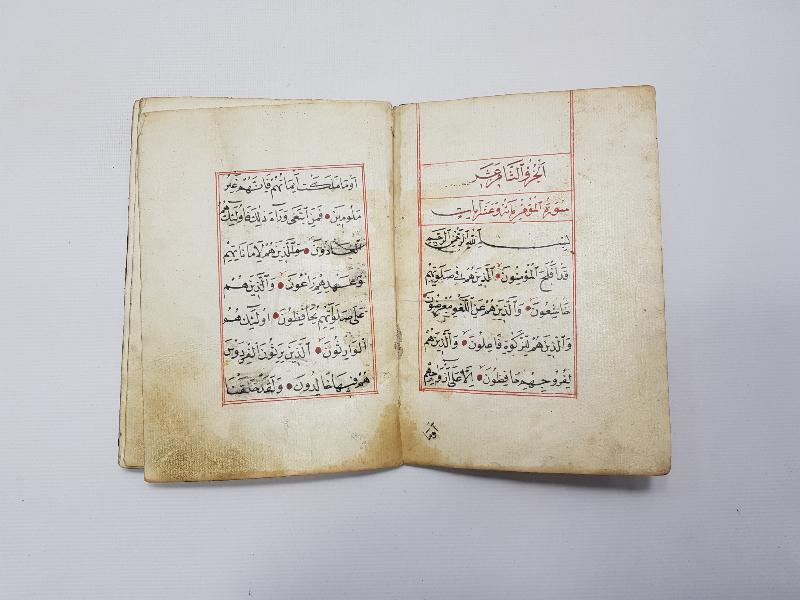 الجزو الثامن عشر
سورة المؤمن مائة وعشر ايات
بسم الله الرحمن الرحيم
قَدْ اَفْلَحَ الْمُؤْمِنُونَ الَّذِينَ هُمْ فِي صَلَوتِهِمْ
خَاشِعُونَ وَالَّذِينَ هُمْ عَنِ اللَّغْوِ مُعْرِضُونَ
وَالَّذِينَ هُمْ لِلزَّكَوةِ فَاعِلُونَ وَالَّذِينَ هُمْ
لِفُرُوجِهِمْ حَافِظُونَ اِلَّا عَلَى اَزْوَاجِهِمْ
اَوْمَا
اَوْ مَا مَلَكَتْ اَيْمَانُهُمْ فَاِنَّهُمْ غَيْرُ
مَلُومِينَ فَمَنِ ابْتَغَى وَرَاءَ ذَلِكَ فَاُولَئِكَ هُمُ
الْعَادُونَ وَالَّذِينَ هُمْ لِاَمَانَاتِهِمْ
وَعَهْدِهِمْ رَاعُونَ وَالَّذِينَ هُمْ
عَلَى صَلَوَاتِهِمْ يُحَافِظُونَ اُولَئِكَ هُمُ
الْوَارِثُونَ الَّذِينَ يَرِثُونَ الْفِرْدَوْسَ
هُمْ فِيهَا خَالِدُونَ وَلَقَدْ خَلَقْنَا